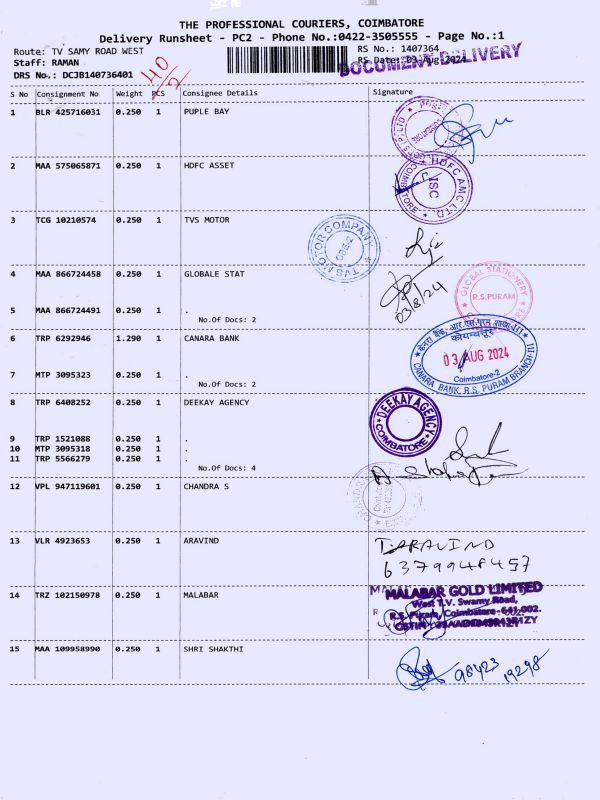 THE PROFESSIONAL COURIERS, COIMBATORE
Delivery Runsheet - PC2 - Phone No.:0422-3505555 - Page No.:1
Route: TV SAMY ROAD WEST
RS No.: 1407364
Staff: RAMAN
RS Date: 03-Aug-2024
DOCUMENT DELIVERY
DRS No.: DCJB140736401
40/2
S No Consignment No Weight PCS Consignee Details Signature
1 BLR 425716031 0.250 1 PUPLE BAY
2 MAA 575065871 0.250 1 HDFC ASSET
HDFC AMC LTD
ISC
3 TCG 10210574 0.250 1 TVS MOTOR
TVS MOTOR COMPANY
CBE-2
4 MAA 866724458 0.250 1 GLOBALE STAT
03/8/24
GLOBAL STATIONERY
R.S.PURAM
5 MAA 866724491 0.250 1 .
No.Of Docs: 2
6 TRP 6292946 1.290 1 CANARA BANK
03 AUG 2024
Coimbatore-2
CANARA BANK, R.S. PURAM BRANCH-III
7 MTP 3095323 0.250 1 .
No.Of Docs: 2
8 TRP 6408252 0.250 1 DEEKAY AGENCY
DEEKAY AGENCY
COIMBATORE
9 TRP 1521088 0.250 1 .
10 MTP 3095318 0.250 1 .
11 TRP 5566279 0.250 1 .
No.Of Docs: 4
12 VPL 947119601 0.250 1 CHANDRA S
13 VLR 4923653 0.250 1 ARAVIND
T.ARAVIND
6379948457
14 TRZ 102150978 0.250 1 MALABAR
MALABAR GOLD LIMITED
West T.V. Swamy Road,
R.S. Puram, Coimbatore-641 002.
15 MAA 109958990 0.250 1 SHRI SHAKTHI
98423 19298